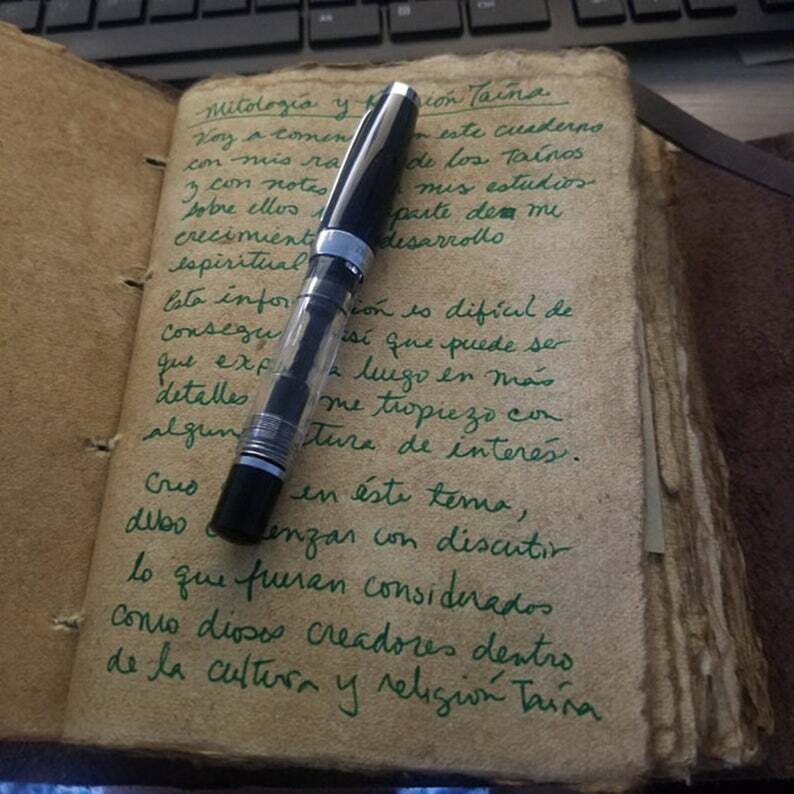 Mitología y ión Taína
Voy a comen n este cuaderno
con mis ra de los Taínos
y con notas mis estudios
sobre ellos parte de me
crecimient desarrollo
espiritual
Esta infor ión es difícil de
consegu así que puede ser
que exp a luego en más
detalles me tropiezo con
algun tura de interés.
Creo en éste tema,
debo c enzar con discutir
lo que fueran considerados
como dioses creadores dentro
de la cultura y religión Taína